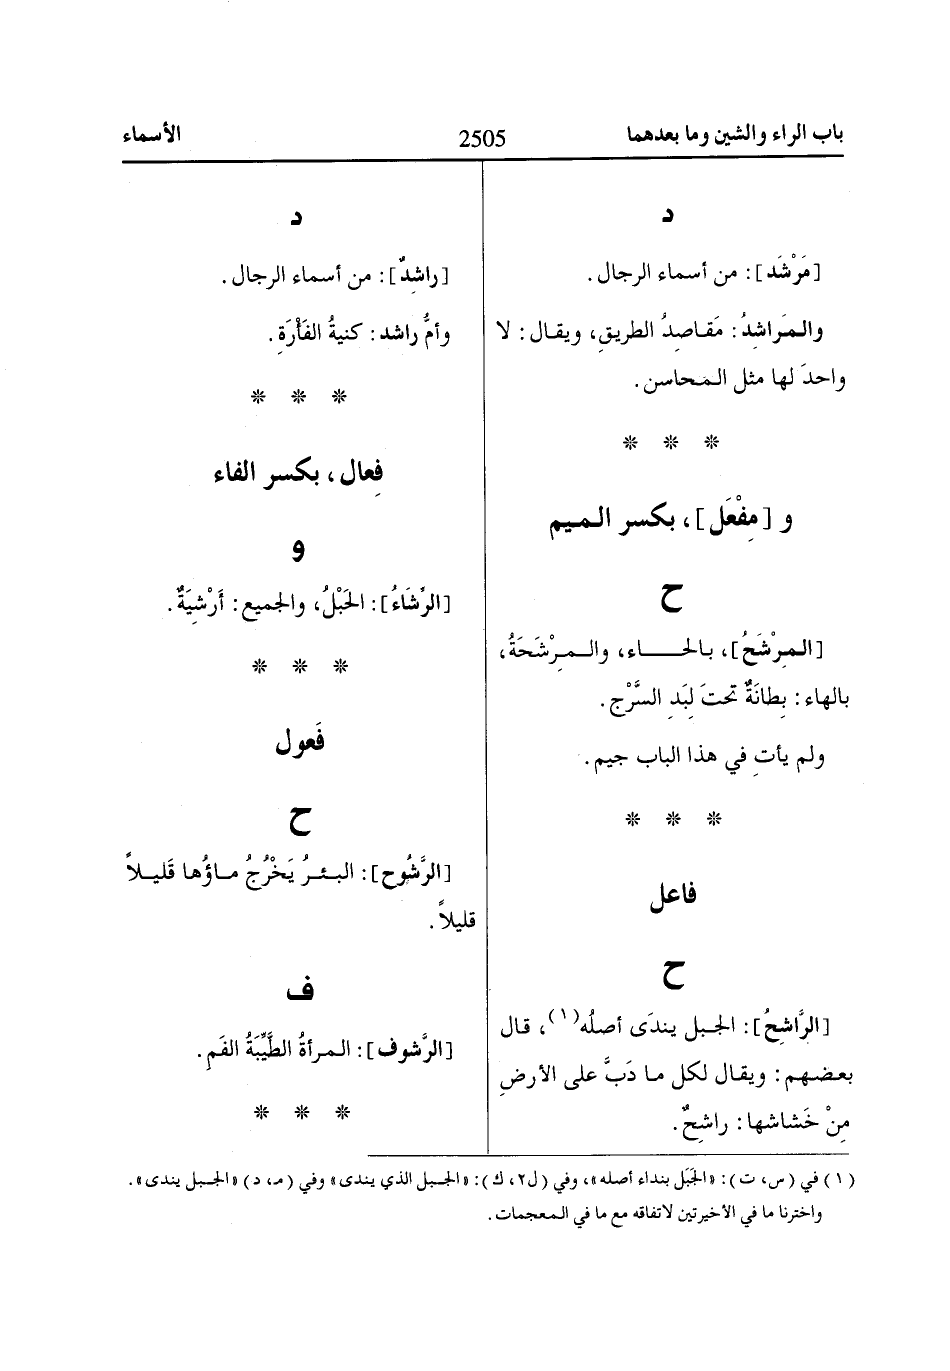 باب الراء والشين وما بعدهما 2505 الأسماء
د
[مَرْشَد]: من أسماء الرجال.
والمَراشِدُ: مَقاصِدُ الطريقِ، ويقال: لا
واحدَ لها مثل المحاسن.
* * *
و [مِفْعَل]، بكسر الميم
ح
[المِرْشَحُ]، بالحاء، والمِرْشَحَةُ،
بالهاء: بِطانَةٌ تحتَ لِبَدِ السَّرْجِ.
ولم يأتِ في هذا الباب جيم.
* * *
فاعل
ح
[الرَّاشِحُ]: الجبل يندَى أصلُه(١)، قال
بعضهم: ويقال لكل ما دَبَّ على الأرضِ
مِنْ خَشاشها: راشِحٌ.
د
[راشِدٌ]: من أسماء الرجال.
وأمُّ راشد: كنيةُ الفَأْرَةِ.
* * *
فِعال، بكسر الفاء
و
[الرِّشَاءُ]: الحَبْلُ، والجميع: أَرْشِيَةٌ.
* * *
فَعول
ح
[الرَّشُوح]: البئرُ يَخْرُجُ ماؤُها قَليلاً
قليلاً.
ف
[الرَّشوف]: المرأةُ الطَّيِّبَةُ الفَمِ.
* * *
(١) في (س، ت): «الجَبَل بنداء أصله»، وفي (ل٢، ك): «الجبل الذي يندى» وفي (م، د) «الجبل يندى».
واخترنا ما في الأخيرتين لاتفاقه مع ما في المعجمات.